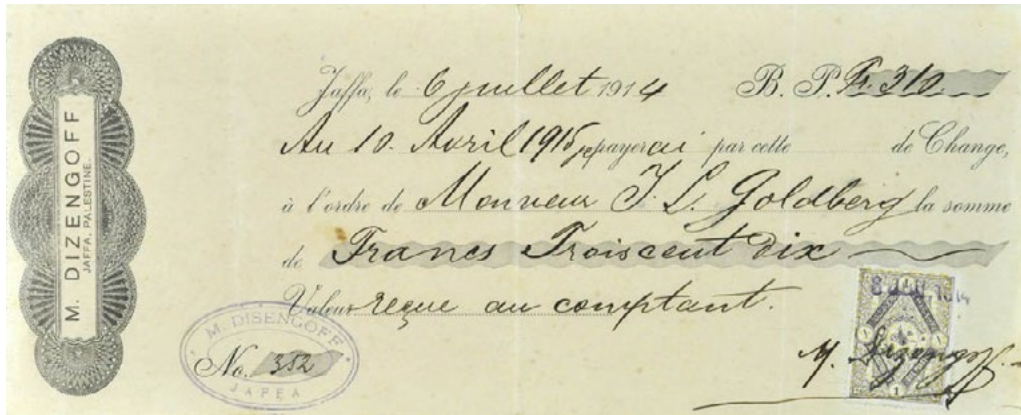 M. DIZENGOFF
JAFFA, PALESTINE.
Jaffa, le 6 juillet 1914 B. P. Fr. 310.
Au 10. Avril 1915 je payerai par cette de Change,
à l'ordre de Monsieur I. L. Goldberg la somme
de Francs Troiscent dix
Valeur reçue au comptant.
M. DISENGOFF
No. 352
JAFFA
8 1914
1 1
1
M. Dizengoff.